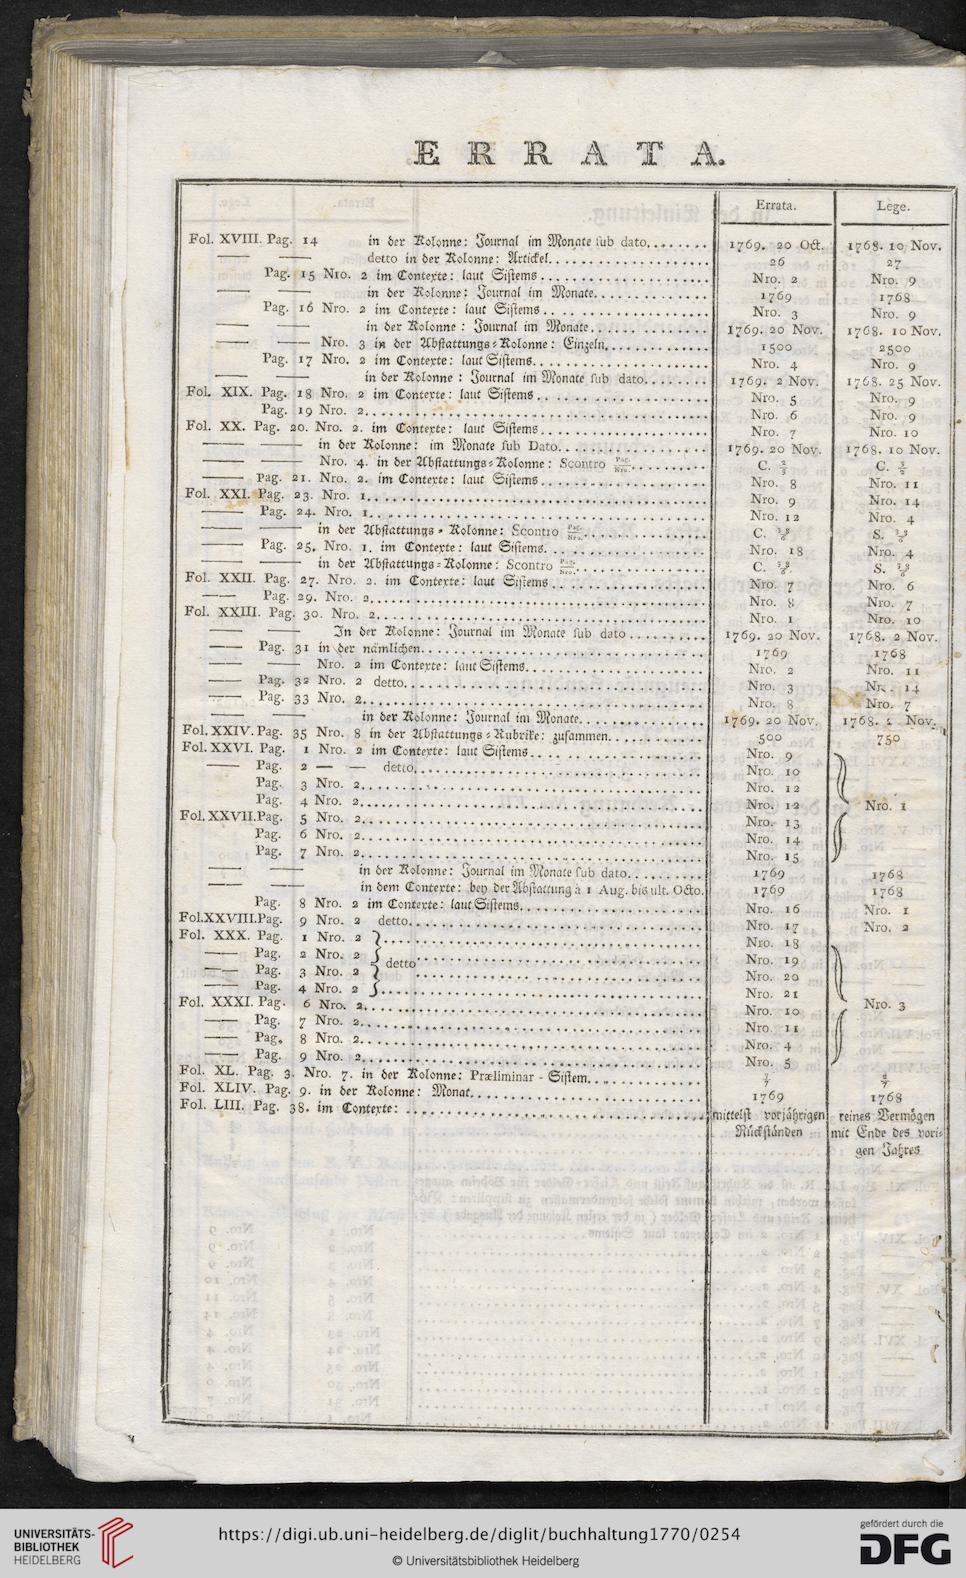 ERRATA.
Errata. Lege.
Fol. XVIII. Pag. 14 in der Kolonne: Journal im Monate sub dato........ 1769. 20 Oct. 1768. 10 Nov.
—— —— detto in der Kolonne: Artickel.................... 26 27
Pag. 15 Nro. 2 im Contexte: laut Sistems..................... Nro. 2 Nro. 9
—— —— in der Kolonne: Journal im Monate............... 1769 1768
Pag. 16 Nro. 2 im Contexte: laut Sistems..................... Nro. 3 Nro. 9
—— —— in der Kolonne: Journal im Monate............... 1769. 20 Nov. 1768. 10 Nov.
—— —— Nro. 3 in der Abstattungs-Kolonne: Einzeln.............. 1500 2500
Pag. 17 Nro. 2 im Contexte: laut Sistems..................... Nro. 4 Nro. 9
—— —— in der Kolonne: Journal im Monate sub dato........ 1769. 2 Nov. 1768. 25 Nov.
Fol. XIX. Pag. 18 Nro. 2 im Contexte: laut Sistems..................... Nro. 5 Nro. 9
Pag. 19 Nro. 2............................................ Nro. 6 Nro. 9
Fol. XX. Pag. 20. Nro. 2. im Contexte: laut Sistems..................... Nro. 7 Nro. 10
—— —— in der Kolonne: im Monate sub Dato.................. 1769. 20 Nov. 1768. 10 Nov.
—— —— Nro. 4. in der Abstattungs-Kolonne: Scontro Pag./Nro........... C. 2/3 C. 3/2
—— Pag. 21. Nro. 2. im Contexte: laut Sistems..................... Nro. 8 Nro. 11
Fol. XXI. Pag. 23. Nro. 1............................................ Nro. 9 Nro. 14
—— Pag. 24. Nro. 1............................................ Nro. 12 Nro. 4
—— —— in der Abstattungs-Kolonne: Scontro Pag./Nro............... C. S.
—— Pag. 25. Nro. 1. im Contexte: laut Sistems..................... Nro. 18 Nro. 4
—— —— in der Abstattungs-Kolonne: Scontro Pag./Nro............... C. S.
Fol. XXII. Pag. 27. Nro. 2. im Contexte: laut Sistems..................... Nro. 7 Nro. 6
—— Pag. 29. Nro. 2............................................ Nro. 8 Nro. 7
Fol. XXIII. Pag. 30. Nro. 2............................................ Nro. 1 Nro. 10
—— —— In der Kolonne: Journal im Monate sub dato.......... 1769. 20 Nov. 1768. 2 Nov.
—— Pag. 31 in der nämlichen.................................... 1769 1768
—— —— Nro. 2 im Contexte: laut Sistems..................... Nro. 2 Nro. 11
—— Pag. 32 Nro. 2 detto..................................... Nro. 3 Nr. 14
—— Pag. 33 Nro. 2............................................ Nro. 8 Nro. 7
—— —— in der Kolonne: Journal im Monate................ 1769. 20 Nov. 1768. 2 Nov.
Fol. XXIV. Pag. 35 Nro. 8 in der Abstattungs-Rubrike: zusammen............ 500 750
Fol. XXVI. Pag. 1 Nro. 2 im Contexte: laut Sistems..................... Nro. 9
—— Pag. 2 — — detto..................................... Nro. 10
Pag. 3 Nro. 2............................................ Nro. 12
Pag. 4 Nro. 2............................................ Nro. 12 Nro. 1
Fol. XXVII. Pag. 5 Nro. 2............................................ Nro. 13
Pag. 6 Nro. 2............................................ Nro. 14
Pag. 7 Nro. 2............................................ Nro. 15
—— —— in der Kolonne: Journal im Monate sub dato.......... 1769 1768
—— —— in dem Contexte: bey der Abstattung à 1 Aug. bis ult. Octo. 1769 1768
Pag. 8 Nro. 2 im Contexte: laut Sistems..................... Nro. 16 Nro. 1
Fol. XXVIII. Pag. 9 Nro. 2 detto..................................... Nro. 17 Nro. 2
Fol. XXX. Pag. 1 Nro. 2 }..................................... Nro. 18
—— Pag. 2 Nro. 2 } detto............................... Nro. 19
—— Pag. 3 Nro. 2 }..................................... Nro. 20
—— Pag. 4 Nro. 2 }..................................... Nro. 21 Nro. 3
Fol. XXXI. Pag. 6 Nro. 2............................................ Nro. 10
—— Pag. 7 Nro. 2............................................ Nro. 11
—— Pag. 8 Nro. 2............................................ Nro. 4
—— Pag. 9 Nro. 2............................................ Nro. 5
Fol. XL. Pag. 3. Nro. 7. in der Kolonne: Præliminar-Sistem...............
Fol. XLIV. Pag. 9. in der Kolonne: Monat............................. 1769 1768
Fol. LIII. Pag. 38. im Contexte:...................................... mittelst vorjährigen reines Vermögen
Rückständen mit Ende des vori-
gen Jahres
UNIVERSITÄTS-
BIBLIOTHEK
HEIDELBERG
https://digi.ub.uni-heidelberg.de/diglit/buchhaltung1770/0254
© Universitätsbibliothek Heidelberg
gefördert durch die
DFG